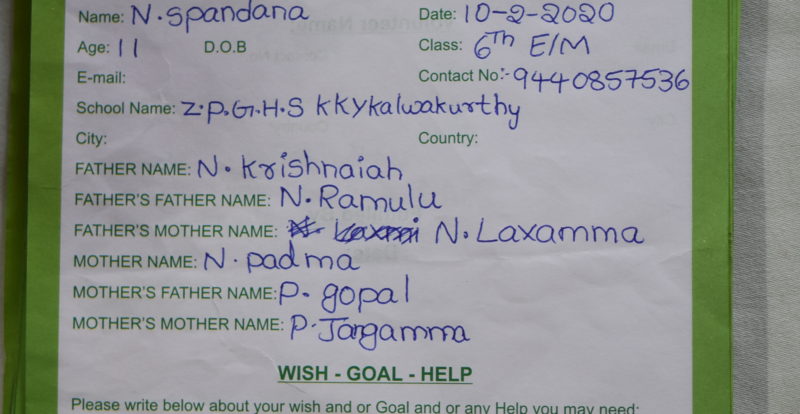 Name: N. Spandana Date: 10-2-2020
Age: 11 D.O.B Class: 6th E/M
E-mail: Contact No:- 9440857536
School Name: Z.P.G.H.S KKYkalwakurthy
City: Country:
FATHER NAME: N. Krishnaiah
FATHER'S FATHER NAME: N. Ramulu
FATHER'S MOTHER NAME: N. Laxamma
MOTHER NAME: N. padma
MOTHER'S FATHER NAME: P. gopal
MOTHER'S MOTHER NAME: P. Jangamma
WISH - GOAL - HELP
Please write below about your wish and or Goal and or any Help you may need: